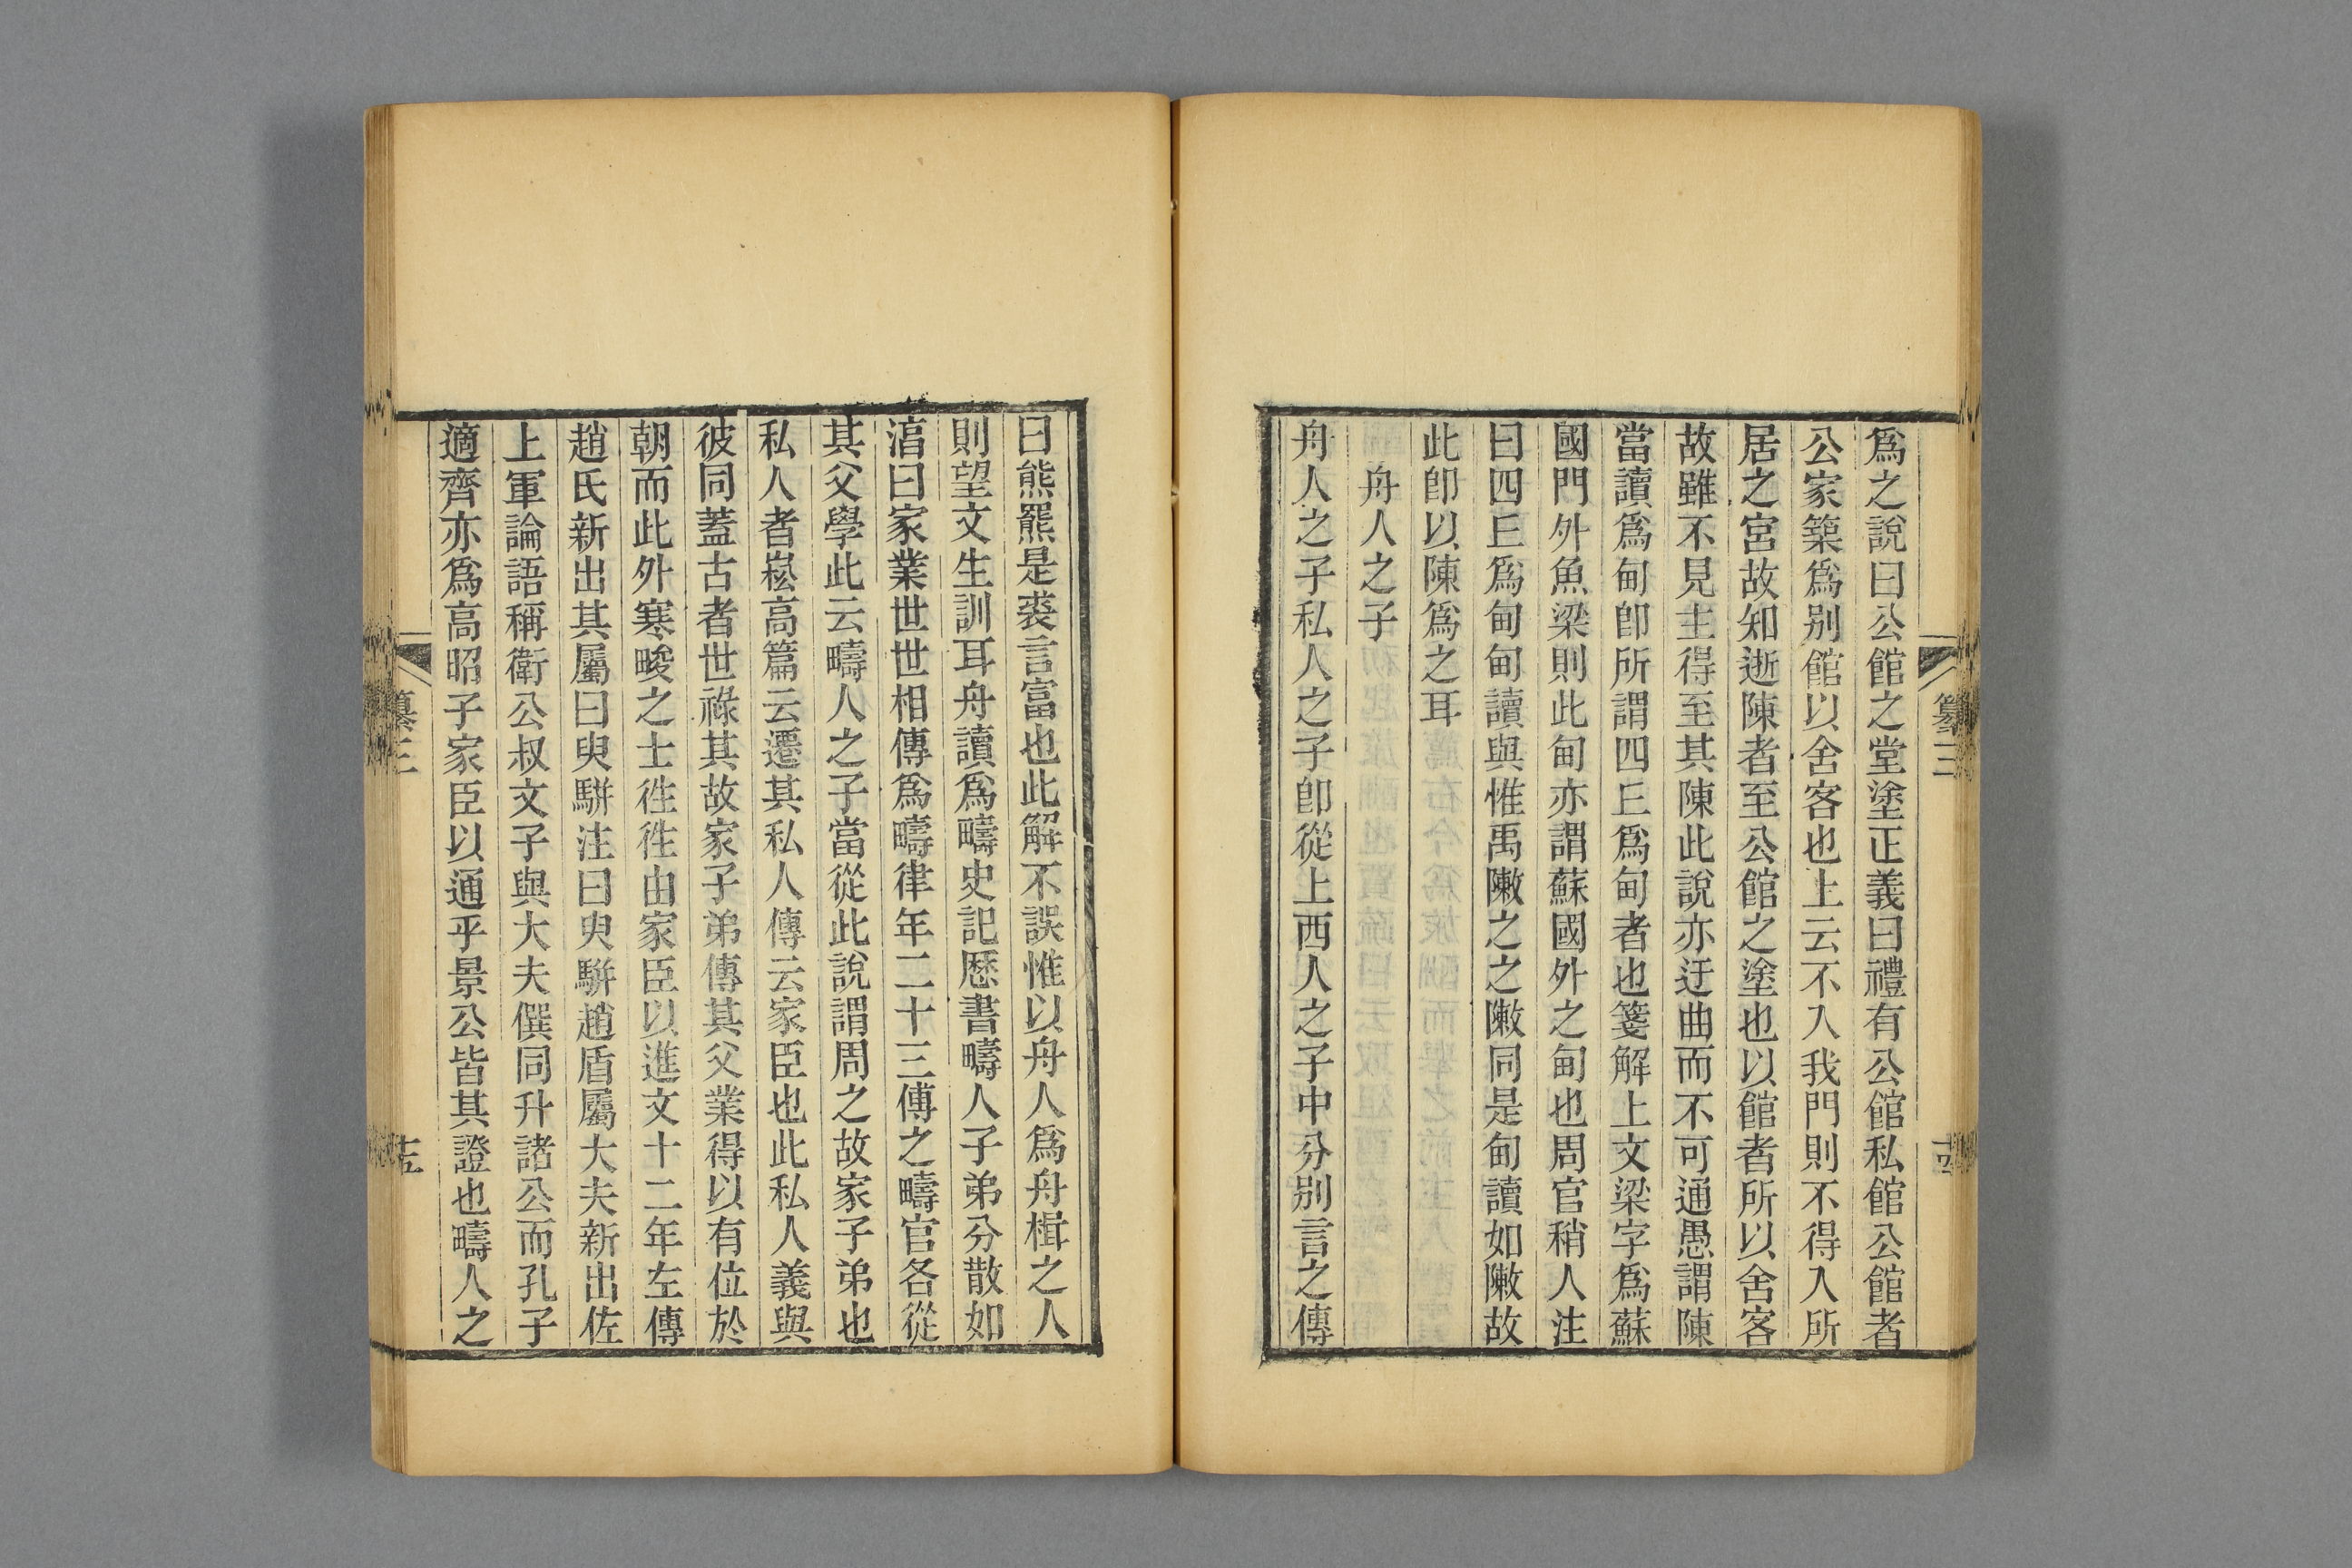 爲之說曰公館之堂塗正義曰禮有公館私館公館者
公家築爲别館以舍客也上云不入我門則不得入所
居之宮故知逝陳者至公館之塗也以館者所以舍客
故雖不見主得至其陳此說亦迂曲而不可通愚謂陳
當讀爲甸卽所謂四丘爲甸者也箋解上文梁字爲蘇
國門外魚梁則此甸亦謂蘇國外之甸也周官稍人注
曰四丘爲甸甸讀與惟禹敶之之敶同是甸讀如敶故
此卽以陳爲之耳
舟人之子
舟人之子私人之子卽從上西人之子中分别言之傳
纂三
曰熊羆是裘言富也此解不誤惟以舟人爲舟楫之人
則望文生訓耳舟讀爲疇史記歷書疇人子弟分散如
湻曰家業世世相傳爲疇律年二十三傅之疇官各從
其父學此云疇人之子當從此說謂周之故家子弟也
私人者崧高篇云遷其私人傳云家臣也此私人義與
彼同蓋古者世祿其故家子弟傳其父業得以有位於
朝而此外寒畯之士徃徃由家臣以進文十二年左傳
趙氏新出其屬曰臾駢注曰臾駢趙盾屬大夫新出佐
上軍論語稱衛公叔文子與大夫僎同升諸公而孔子
適齊亦爲高昭子家臣以通乎景公皆其證也疇人之
纂三